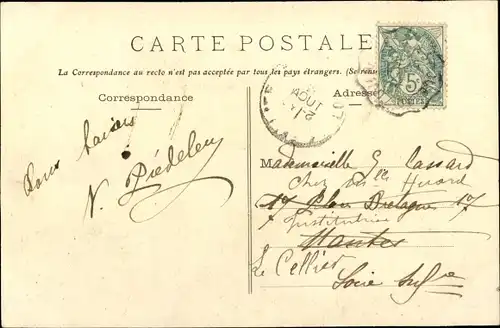 CARTE POSTALE
La Correspondance au recto n'est pas acceptée par tous les pays étrangers. (Se rens
Correspondance
Adresse
5
POSTES
AOUT
Bons baisers
Piédeleu
Mademoiselle G. Cassard
chez Mlle Huard
17 Place Bretagne 17
Institutrice
Nantes
Le Cellier
Loire Infre